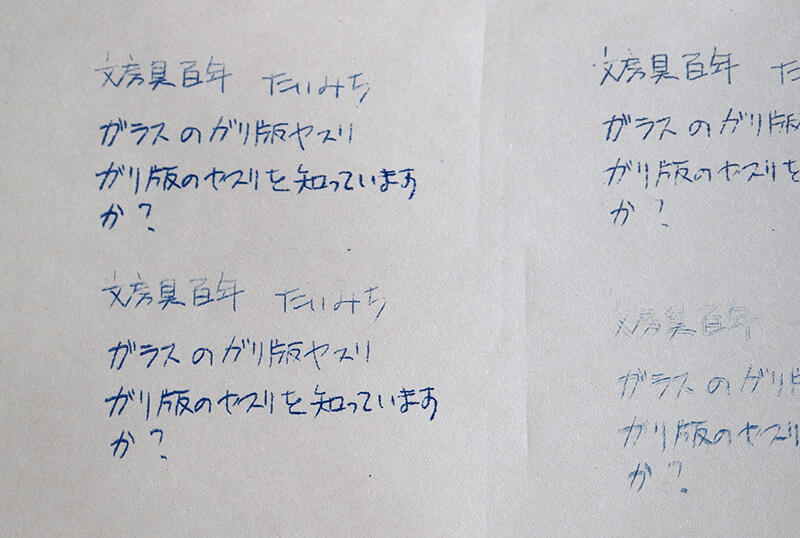 文房具百年 たいみち
ガラスのガリ版ヤスリ
ガリ版のヤスリを知っています
か?
文房具百年 たいみち
ガラスのガリ版ヤスリ
ガリ版のヤスリを知っています
か?
文房具百年 た
ガラスのガリ版
ガリ版のヤスリを
か?
文房具百年
ガラスのガリ版
ガリ版のヤスリ
か?